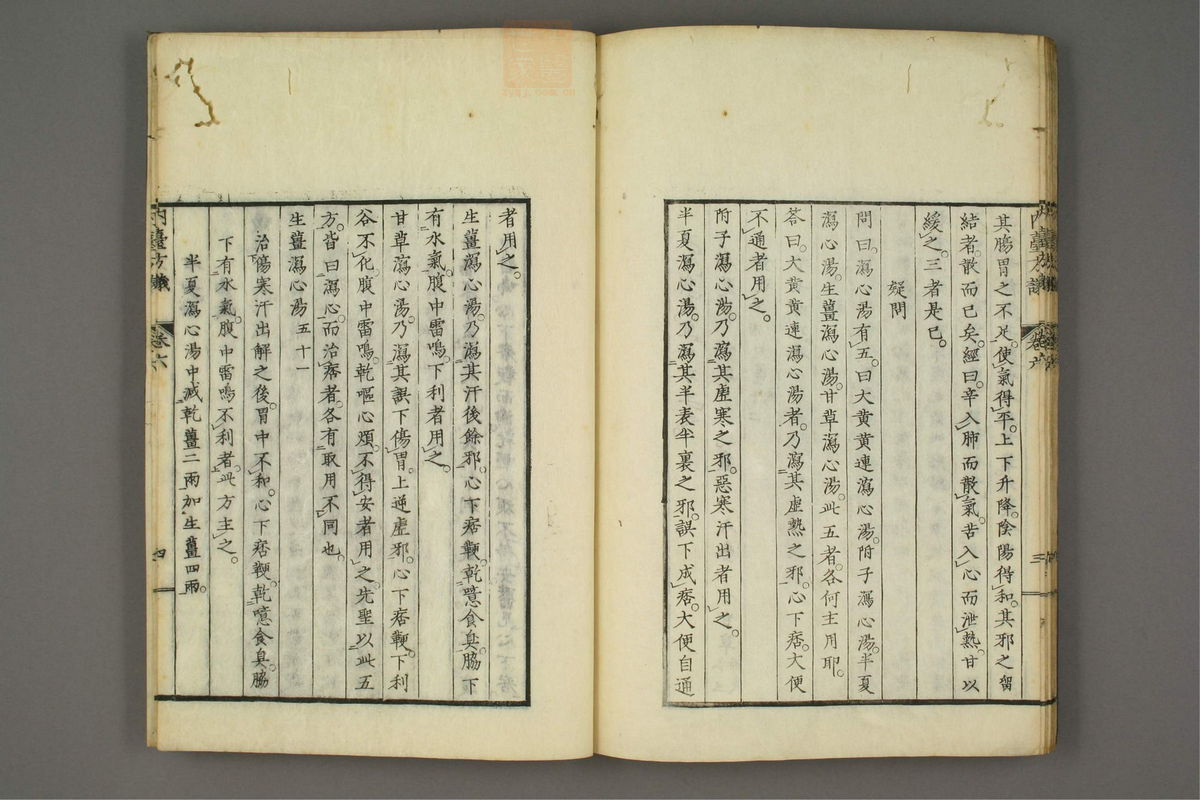 其腸胃之不足。使氣得平。上下升降。陰陽得和。其邪之留
結者。散而已矣。經曰。辛入肺而散氣。苦入心而泄熱。甘以
緩之。三者是已。
疑問
問曰。瀉心湯有五。曰大黄黄連瀉心湯。附子瀉心湯。半夏
瀉心湯。生薑瀉心湯。甘草瀉心湯。此五者。各何主用耶。
荅曰。大黄黄連瀉心湯者。乃瀉其虛熱之邪。心下痞。大便
不通者用之。
附子瀉心湯。乃瀉其虛寒之邪。惡寒汗出者用之。
半夏瀉心湯。乃瀉其半表半裏之邪。誤下成痞。大便自通
內臺方議
卷六
三
者用之。
生薑瀉心湯。乃瀉其汗後餘邪。心下痞鞕。乾噫食臭。脇下
有水氣。腹中雷鳴。下利者用之。
甘草瀉心湯。乃瀉其誤下傷胃。上逆虛邪。心下痞鞕。下利
谷不化。腹中雷鳴。乾嘔心煩。不得安者用之。先聖以此五
方。皆曰瀉心。而治痞者。各有取用不同也。
生薑瀉心湯 五十一
治傷寒汗出解之後。胃中不和。心下痞鞕。乾噫食臭。脇
下有水氣。腹中雷鳴不利者。此方主之。
半夏瀉心湯中減乾薑二兩加生薑四兩。
內臺方議
卷六
四